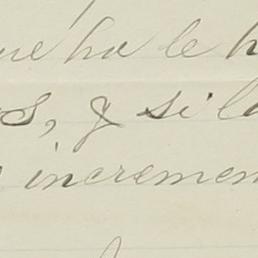 que ha le h
s, y si la
incremen